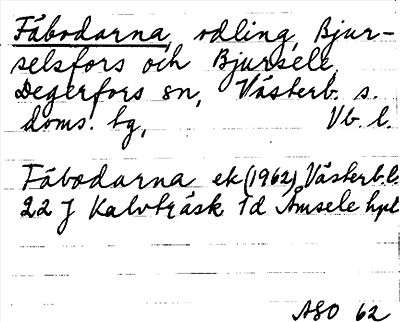 Fäbodarna, odling, Bjur-
selsfors och Bjursele,
Degerfors sn, Västerb. s.
doms. bg, Vb. l.
Fäbodarna ek (1962) Västerb.l.
22 J Kalvträsk 1d Åmsele hpl
ASO 62